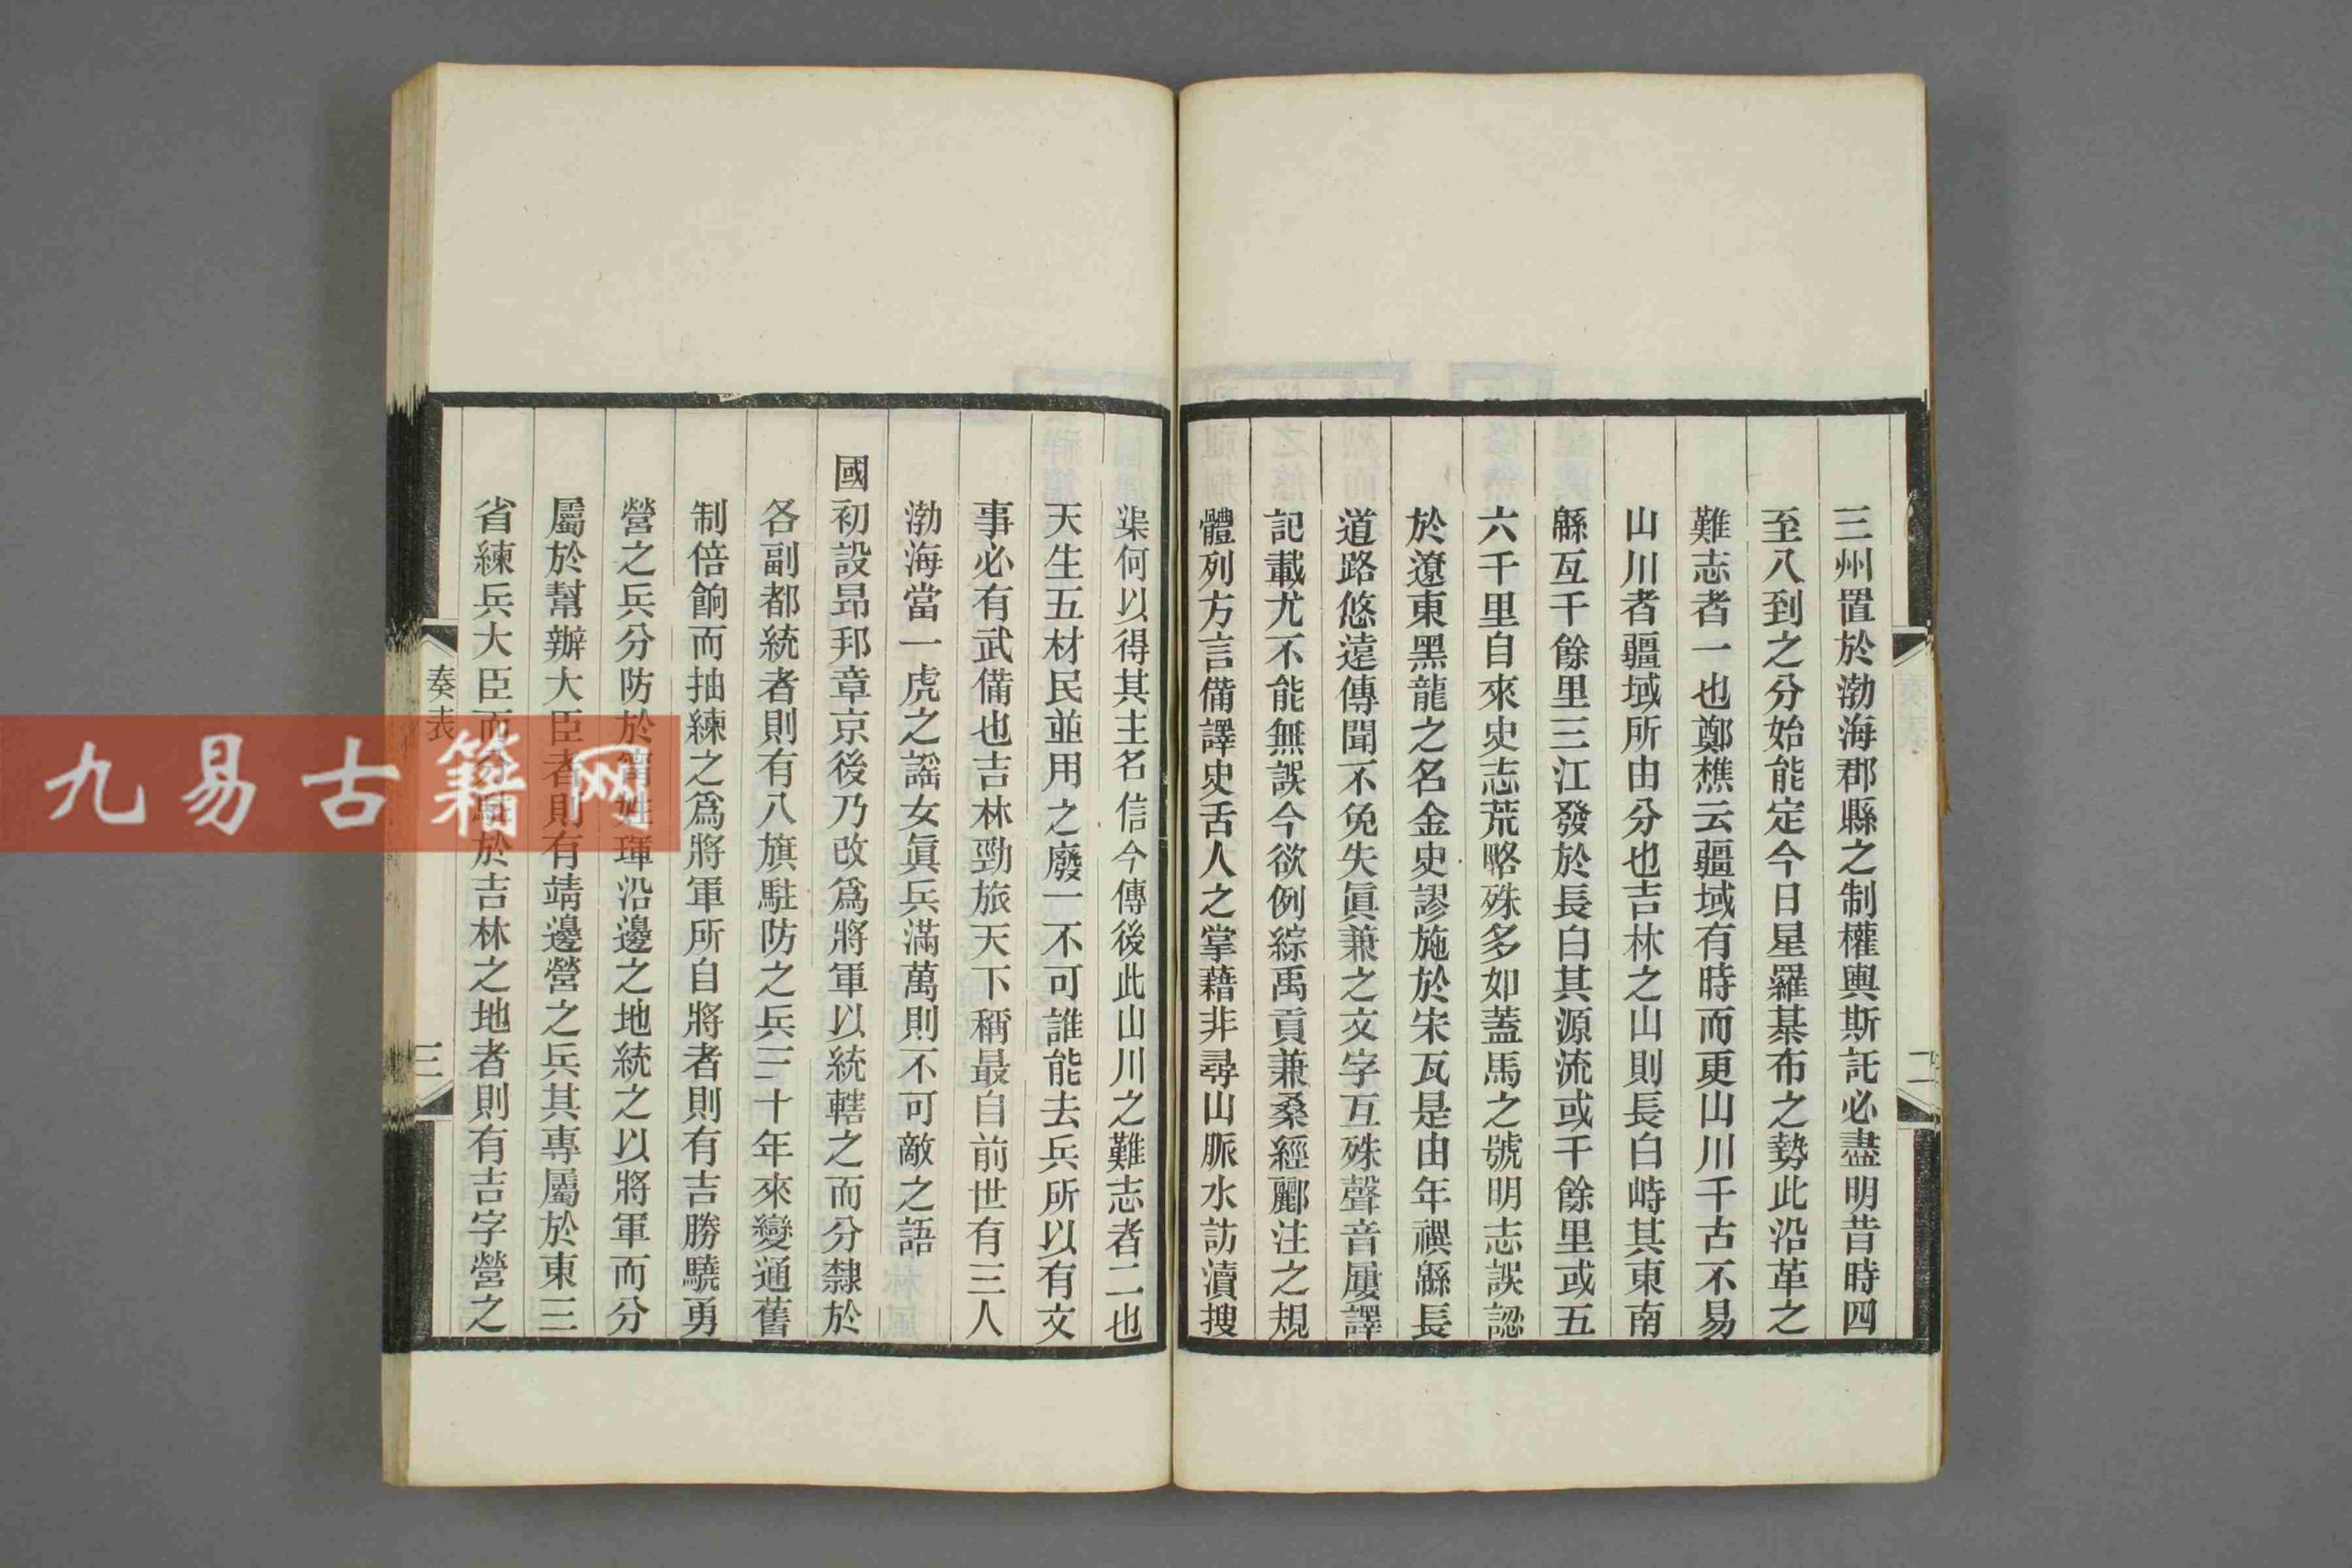 三州置於渤海郡縣之制權輿斯託必盡明昔時四
至八到之分始能定今日星羅棊布之勢此沿革之
難志者一也鄭樵云疆域有時而更山川千古不易
山川者疆域所由分也吉林之山則長白峙其東南
緜亙千餘里三江發於長白其源流或千餘里或五
六千里自來史志荒略殊多如蓋馬之號明志誤認
於遼東黑龍之名金史謬施於宋瓦是由年禩緜長
道路悠遠傳聞不免失眞兼之文字互殊聲音屢譯
記載尤不能無誤今欲例綜禹貢兼桑經酈注之規
體列方言備譯史舌人之掌藉非尋山脈水訪瀆搜
二
渠何以得其主名信今傳後此山川之難志者二也
天生五材民並用之廢一不可誰能去兵所以有文
事必有武備也吉林勁旅天下稱最自前世有三人
渤海當一虎之謠女眞兵滿萬則不可敵之語
國初設昂邦章京後乃改爲將軍以統轄之而分隸於
各副都統者則有八旗駐防之兵三十年來變通舊
制倍餉而抽練之爲將軍所自將者則有吉勝驍勇
營之兵分防於甯姓琿沿邊之地統之以將軍而分
屬於幫辦大臣者則有靖邊營之兵其專屬於東三
省練兵大臣而分駐於吉林之地者則有吉字營之
奏表
三
九易古籍网